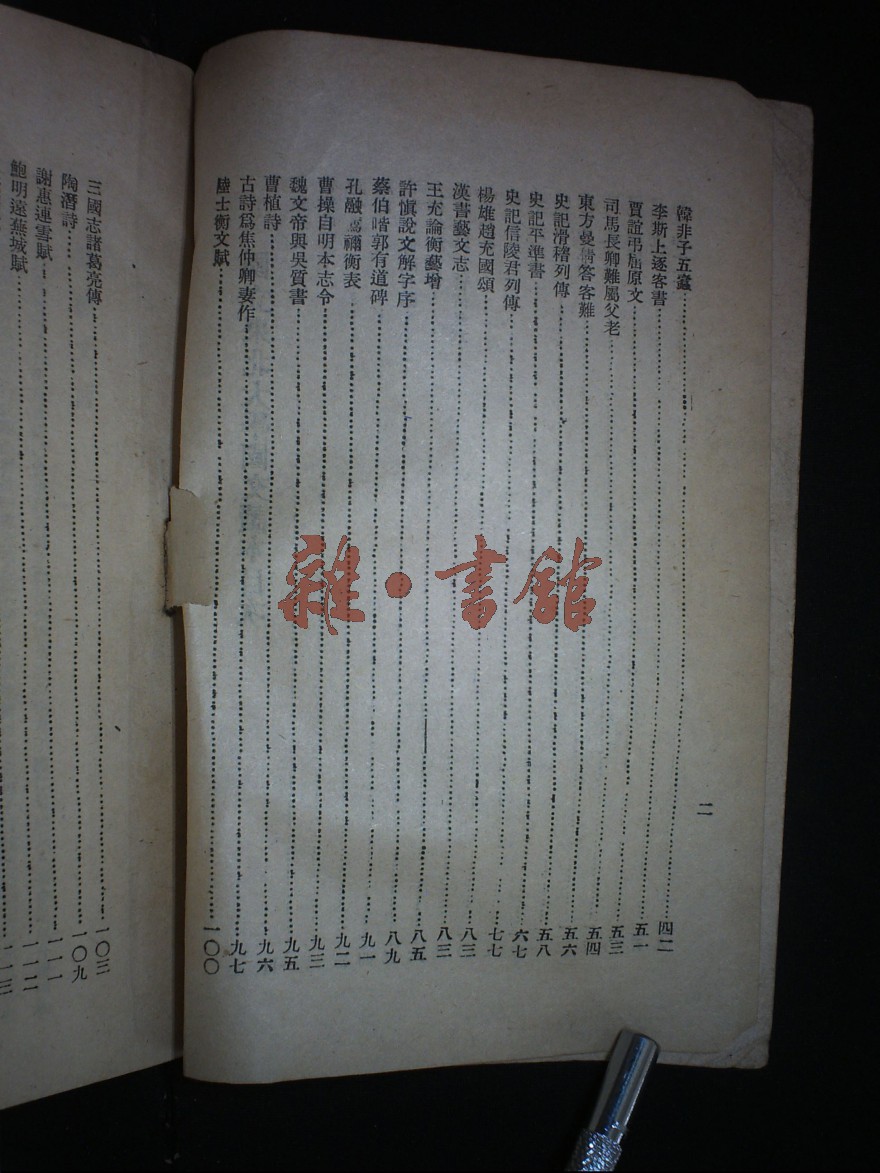 二
韓非子五蠹⋯⋯四二
李斯上逐客書⋯⋯五一
賈誼弔屈原文⋯⋯五三
司馬長卿難屬父老⋯⋯五四
東方曼倩答客難⋯⋯五六
史記滑稽列傳⋯⋯五八
史記平準書⋯⋯六七
史記信陵君列傳⋯⋯七七
楊雄趙充國頌⋯⋯八三
漢書藝文志⋯⋯八三
王充論衡藝增⋯⋯八五
許慎說文解字序⋯⋯八九
蔡伯喈郭有道碑⋯⋯九一
孔融薦禰衡表⋯⋯九二
曹操自明本志令⋯⋯九三
魏文帝與吳質書⋯⋯九五
曹植詩⋯⋯九六
古詩爲焦仲卿妻作⋯⋯九七
陸士衡文賦⋯⋯一〇〇
三國志諸葛亮傳⋯⋯一〇三
陶潛詩⋯⋯一〇九
謝惠連雪賦⋯⋯一一一
鮑明遠蕪城賦⋯⋯一一二
一一三
雜·書館